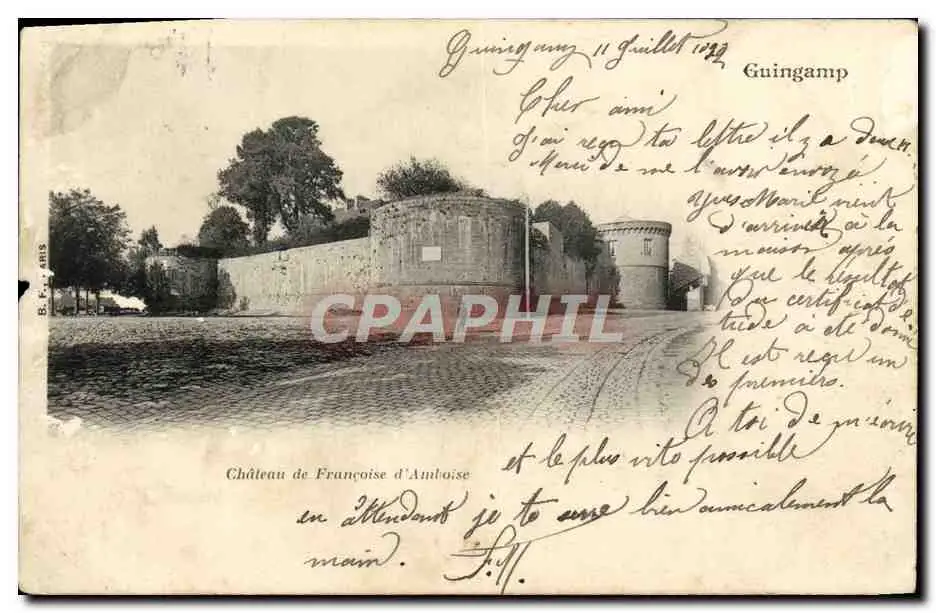 Guingamp 11 Juillet
Guingamp
Cher ami
J'ai reçu ta lettre il y a deux
Merci de me l'avoir envoyé
Yves Marie vient
d'arriver à la
maison après
que le résultat
du certificat d'é
tude a été donné
Il est reçu un
des premiers.
A toi de m'écrire
et le plus vite possible
en attendant je te serre bien amicalement la
main. F.M.
Château de Françoise d'Amboise
B. F., PARIS
CPAPHIL